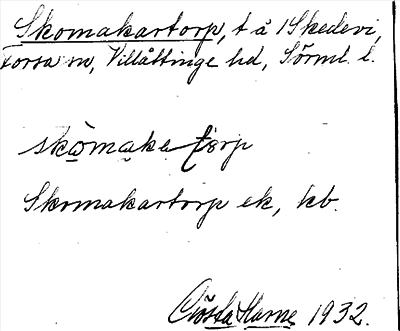 Skomakartorp, t å 1 Skedevi,
Forssa sn, Villåttinge hd, Sörml. l.
skòmake tòrp
Skomakartorp ek, kb.
Gösta Harne 1932.